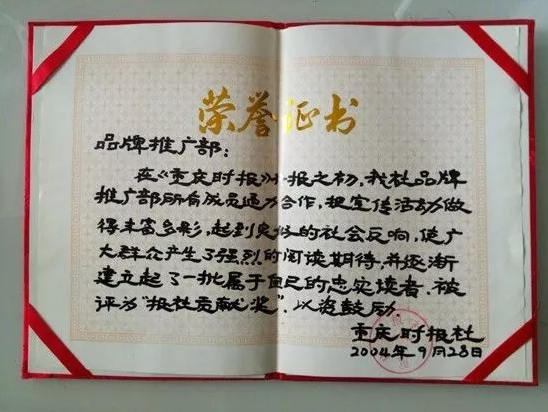 荣誉证书
品牌推广部：
在《重庆时报》报之初，我社品牌
推广部所有成员通力合作，把宣传活动做
得丰富多彩，起到良好的社会反响，使广
大群众产生了强烈的阅读期待，并逐渐
建立起了一批属于自己的忠实读者。被
评为“报社贡献奖”，以资鼓励。
重庆时报社
2004年9月28日